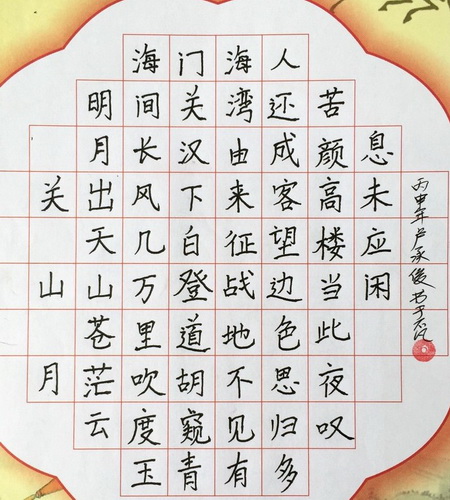 关山月
明月出天山苍茫云
海间长风几万里吹度玉
门关汉下白登道胡窥青
海湾由来征战地不见有
人还成客望边色思归多
苦颜高楼当此夜叹
息未应闲
丙申年卢承俊书于